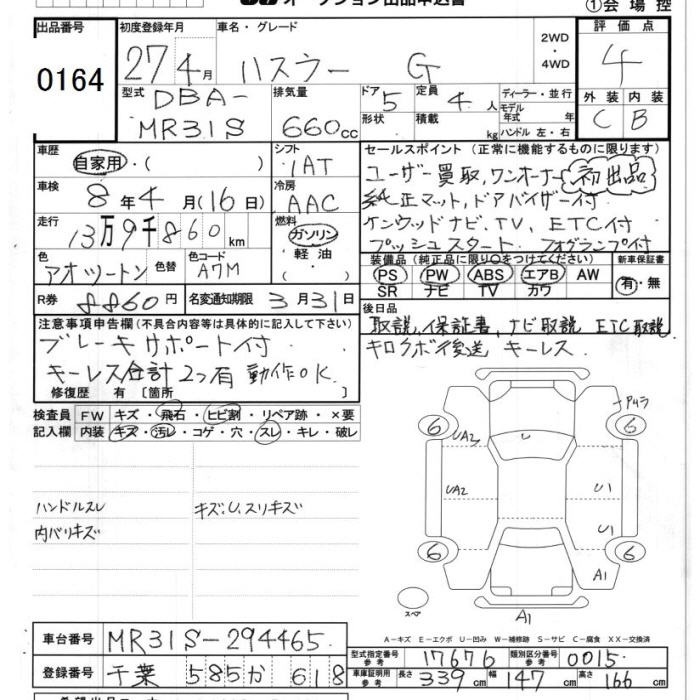 オークション出品申込書
①会場控
出品番号 初度登録年月 車名・グレード 2WD・4WD 評価点
0164 27 4月 ハスラー G 4
型式 排気量 ドア 定員 ディーラー・並行 外装 内装
DBA-MR31S 660cc 5 4人 モデル年式 年 C B
形状 積載 kg ハンドル 左・右
車歴 シフト セールスポイント(正常に機能するものに限ります)
自家用・( ) IAT ユーザー買取,ワンオーナー 初出品
車検 冷房 純正マット,ドアバイザー付
8年4月(16日) AAC ケンウッドナビ,TV,ETC付
走行 燃料 プッシュスタート フォグランプ付
13万9千860km ガソリン・軽油・( )
装備品(純正品に限り○をつけてください) 新車保証書
色 色替 色コード PS PW ABS エアB AW 有・無
アオツートン A7M SR ナビ TV カワ
R券 8860円 名変通知期限 3月31日 後日品
注意事項申告欄(不具合内容等は具体的に記入して下さい) 取説,保証書,ナビ取説 ETC取説
ブレーキサポート付 キロクボ後送 キーレス
キーレス合計2つ有 動作OK
修復歴 有〔箇所
検査員 FW キズ・飛石・ヒビ割・リペア跡・×要
記入欄 内装 キズ・汚レ・コゲ・穴・スレ・キレ・破レ
6 6
UA2 U
UA2 U1
ハンドルスレ キズ,U,スリキズ
内バリキズ U1
6 6
A1
スペア A1
A-キズ E-エクボ U-凹み W-補修跡 S-サビ C-腐食 XX-交換済
車台番号 MR31S-294465 型式指定番号 参考 17676 類別区分番号 参考 0015
登録番号 千葉 585 か 618 車庫証明用 参考 長さ 339cm 幅 147cm 高さ 166cm